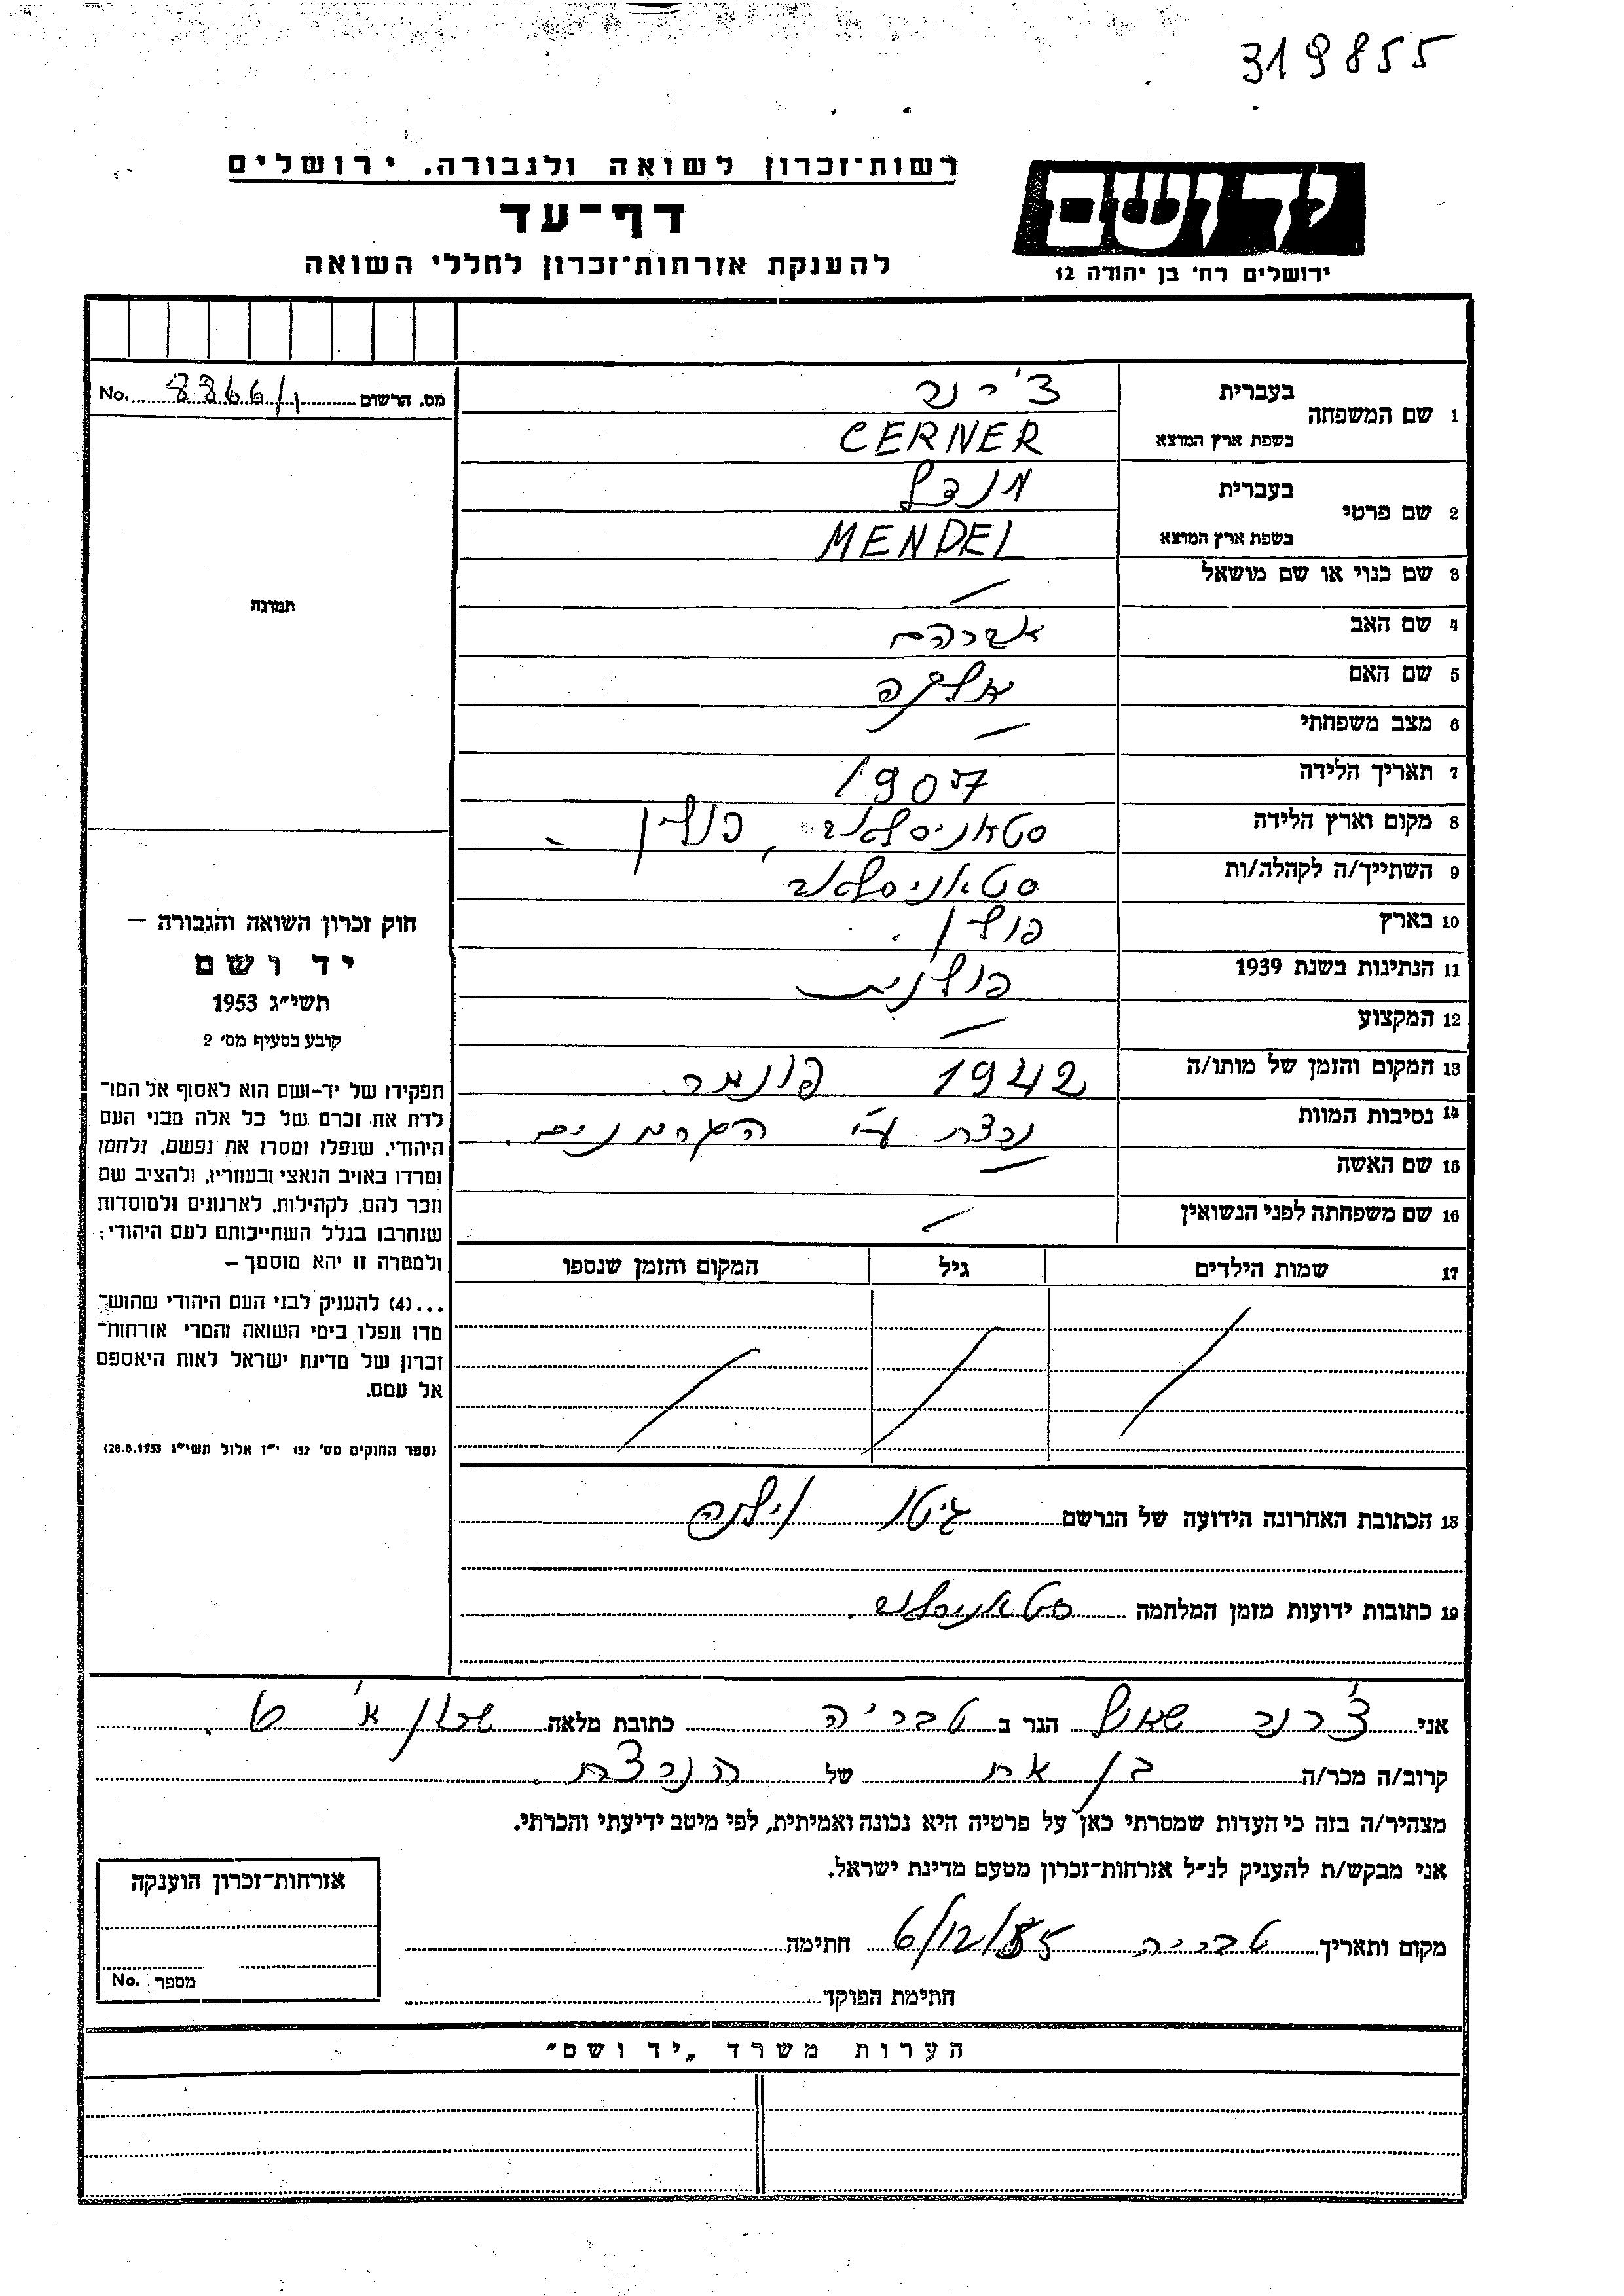 319855
רשות־זכרון לשואה ולגבורה, ירושלים
ידושם
דף־עד
להענקת אזרחות־זכרון לחללי השואה
ירושלים רח' בן יהודה 12
1 שם המשפחה בעברית צ'רנר
בשפת ארץ המוצא CERNER
מס. הרשום 8866/ו No.
2 שם פרטי בעברית מנדל
בשפת ארץ המוצא MENDEL
3 שם כנוי או שם מושאל —
תמונה
4 שם האב אברהם
5 שם האם
6 מצב משפחתי —
7 תאריך הלידה 1907
8 מקום וארץ הלידה סטאניסלאב, פולין
9 השתייך/ה לקהלה/ות סטאניסלאב
10 בארץ פולין.
11 הנתינות בשנת 1939 פולנית
12 המקצוע —
13 המקום והזמן של מותו/ה 1942 פונאר
14 נסיבות המוות נרצח ע"י הגרמנים.
15 שם האשה —
16 שם משפחתה לפני הנשואין —
17 שמות הילדים גיל המקום והזמן שנספו
חוק זכרון השואה והגבורה —
יד ושם
תשי״ג 1953
קובע בסעיף מס׳ 2
תפקידו של יד־ושם הוא לאסוף אל המו־
לדת את זכרם של כל אלה מבני העם
היהודי, שנפלו ומסרו את נפשם, נלחמו
ומרדו באויב הנאצי ובעוזריו, ולהציב שם
וזכר להם, לקהילות, לארגונים ולמוסדות
שנחרבו בגלל השתייכותם לעם היהודי;
ולמטרה זו יהא מוסמך —
...(4) להעניק לבני העם היהודי שהוש־
מדו ונפלו בימי השואה והמרי אזרחות־
זכרון של מדינת ישראל לאות היאספם
אל עמם.
(ספר החוקים מס׳ 132 י״ז אלול תשי״ג 28.8.1953)
18 הכתובת האחרונה הידועה של הנרשם גיטו וילנה
19 כתובות ידועות מזמן המלחמה סטאניסלאב.
אני צ'רנר שאול הגר ב טבריה כתובת מלאה שכון א' ט.
קרוב/ה מכר/ה בן אח של הנרצח.
מצהיר/ה בזה כי העדות שמסרתי כאן על פרטיה היא נכונה ואמיתית, לפי מיטב ידיעתי והכרתי.
אני מבקש/ת להעניק לנ״ל אזרחות־זכרון מטעם מדינת ישראל.
מקום ותאריך טבריה 6/12/55 חתימה
חתימת הפוקד
אזרחות־זכרון הוענקה
מספר No.
הערות משרד „יד ושם״